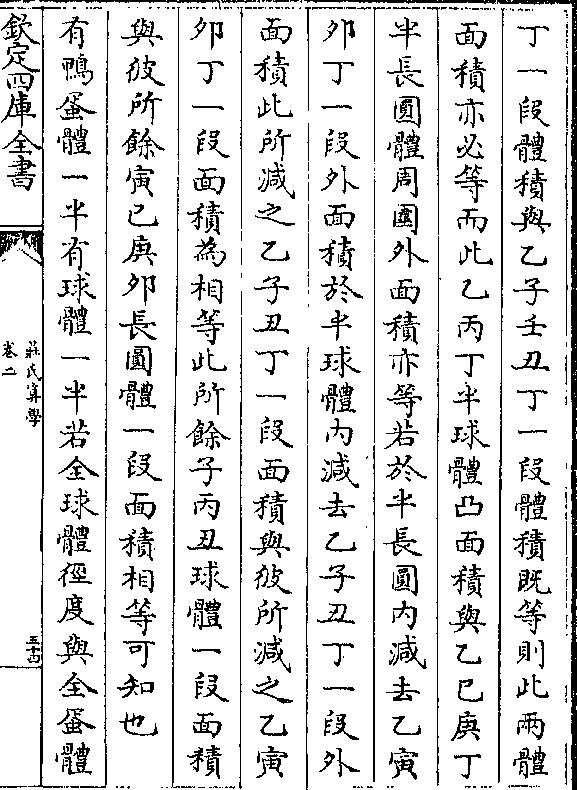 丁一段體積與乙子壬丑丁一段體積既等則此兩體
面積亦必等而此乙丙丁半球體凸面積與乙巳庚丁
半長圓體周圍外面積亦等若於半長圓内減去乙寅
夘丁一段外面積於半球體内減去乙子丑丁一段外
面積此所減之乙子丑丁一段面積與彼所減之乙寅
夘丁一段面積為相等此所餘子丙丑球體一段面積
與彼所餘寅巳庚夘長圓體一段面積相等可知也
有鴨蛋體一半有球體一半若全球體徑度與全蛋體
欽定四庫全書
莊氏算學
卷二
五十四